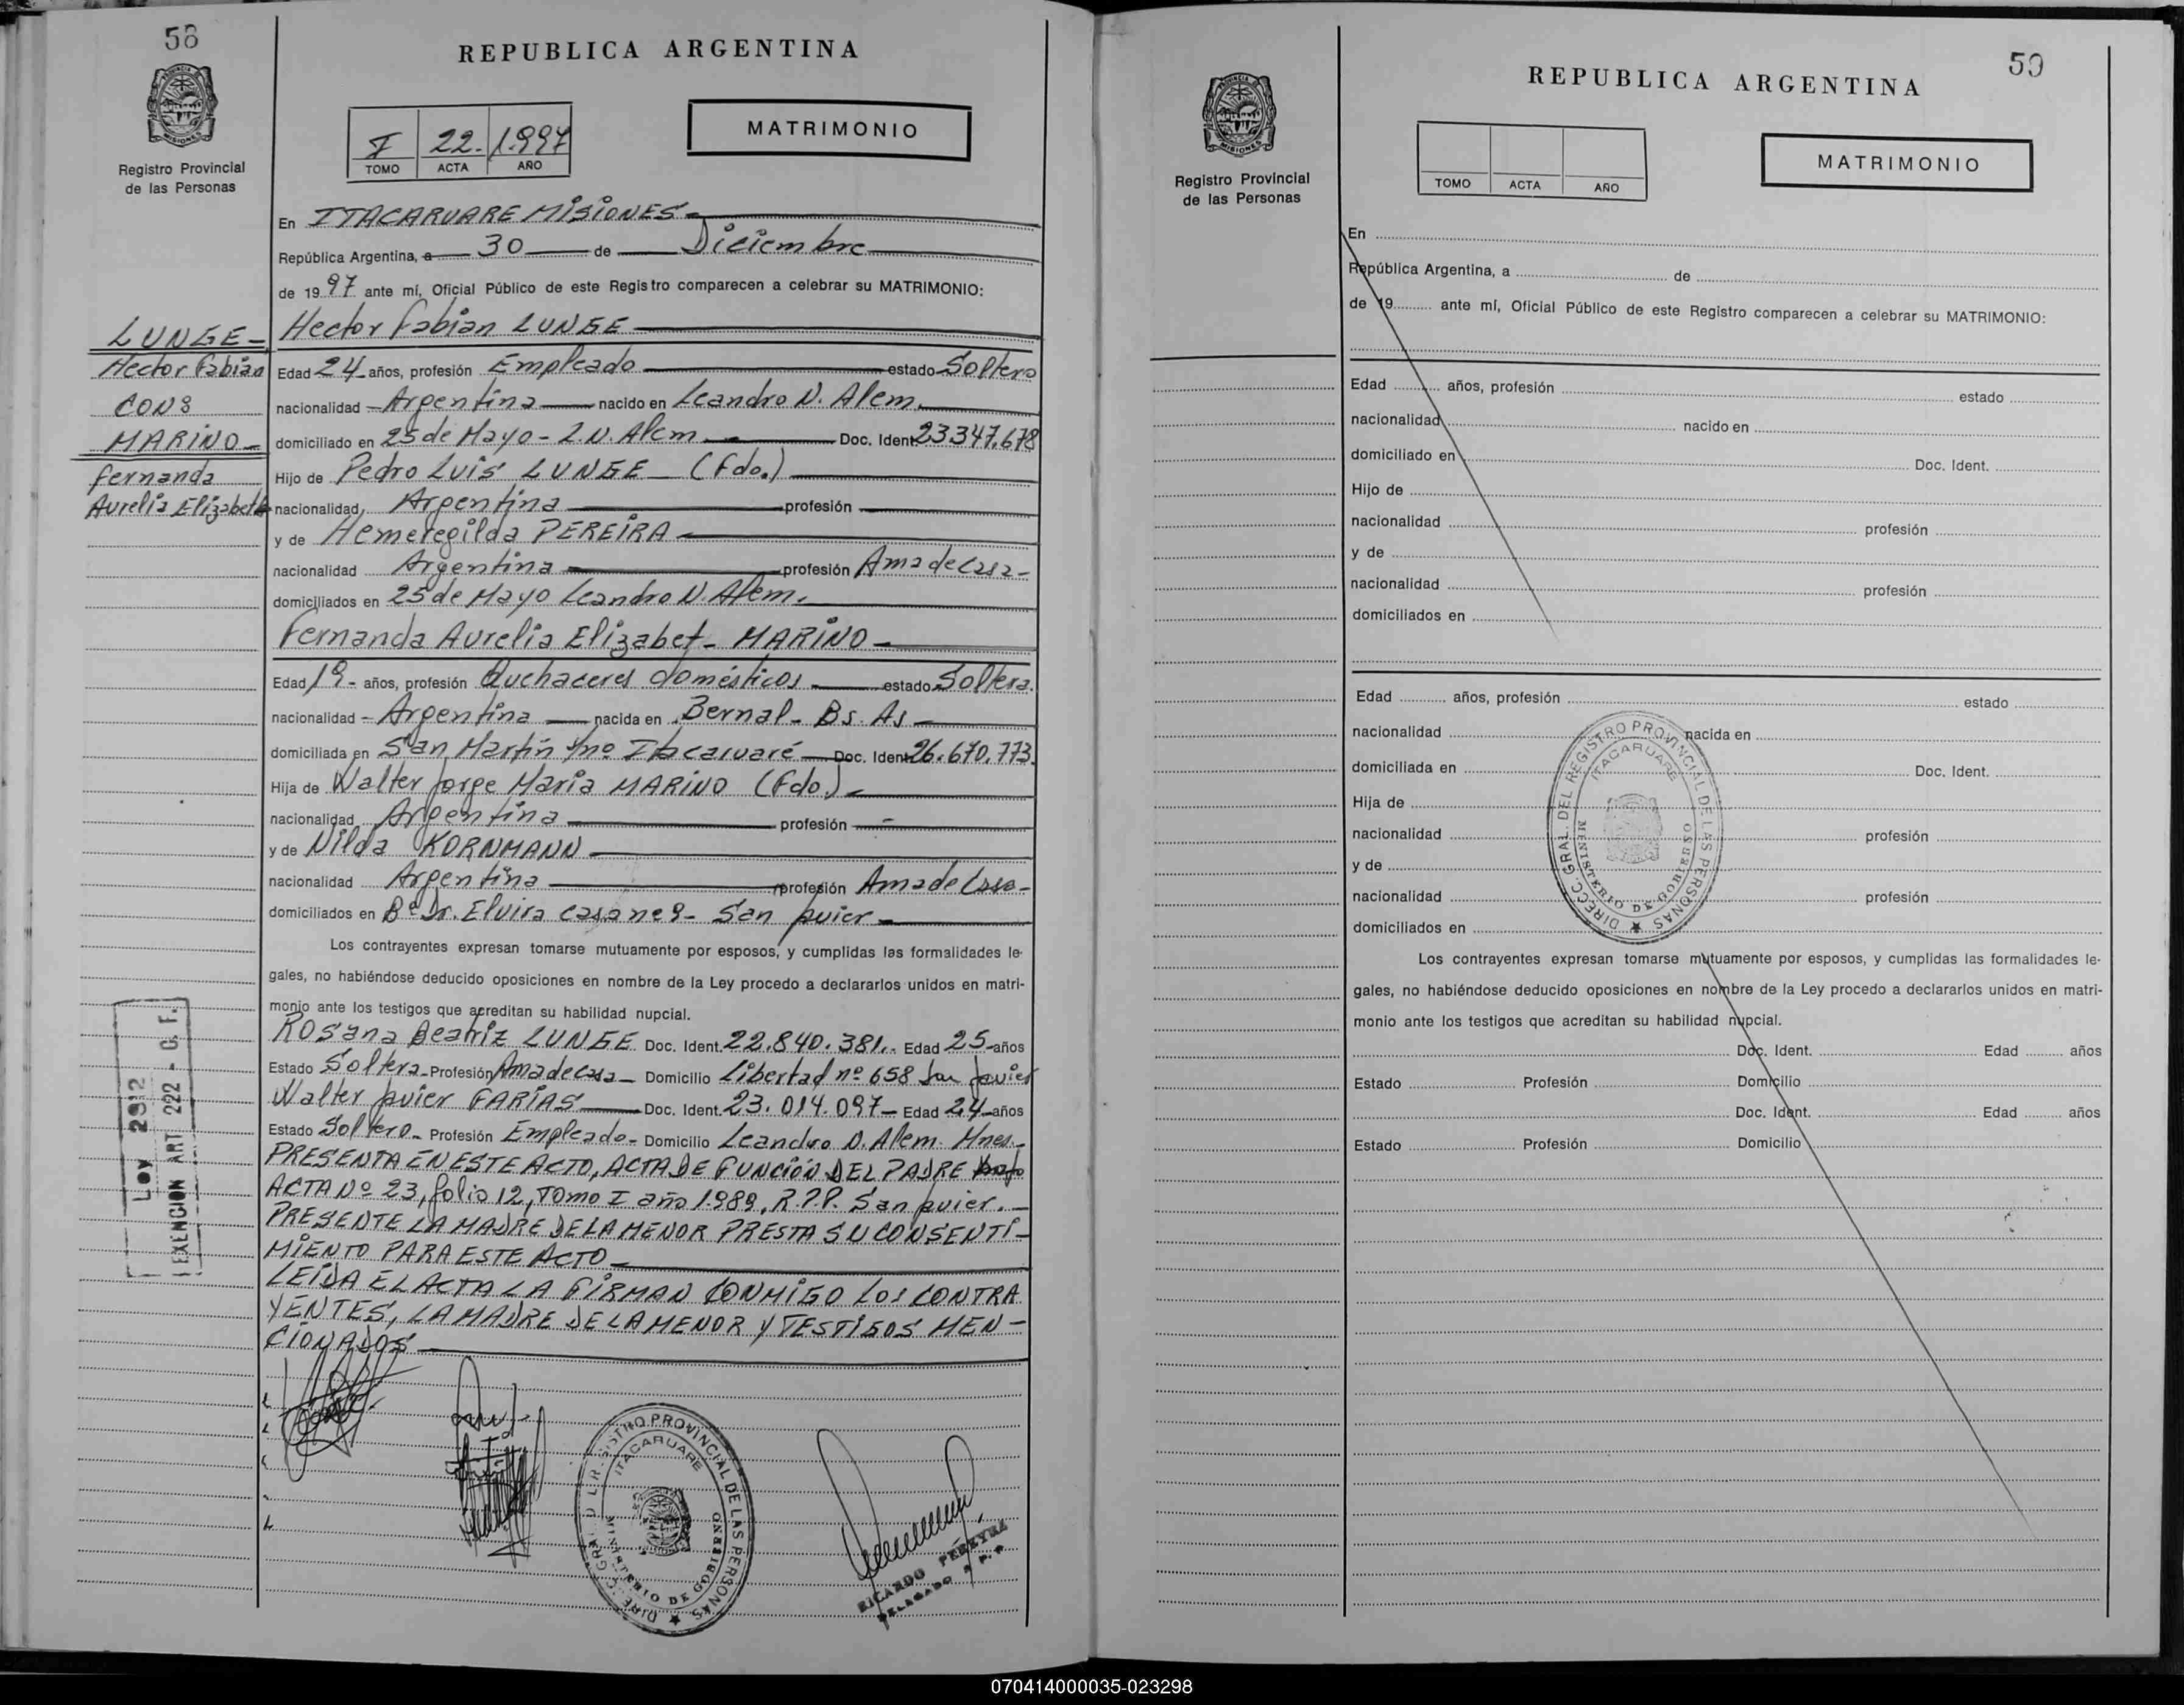 58
REPUBLICA ARGENTINA
PROVINCIA DE MISIONES
Registro Provincial
de las Personas
I 22. 1.997
TOMO ACTA AÑO
MATRIMONIO
En ITACARUARE MISIONES
República Argentina, a 30 de Diciembre
de 1997 ante mí, Oficial Público de este Registro comparecen a celebrar su MATRIMONIO:
LUNGE
Hector Fabián
CON
MARINO
Fernanda
Aurelia Elizabeth
Hector Fabian LUNGE
Edad 24 años, profesión Empleado estado Soltero
nacionalidad Argentina nacido en Leandro N. Alem.
domiciliado en 25 de Mayo - L.N. Alem Doc. Ident. 23.347.678
Hijo de Pedro Luis LUNGE (Fdo.)
nacionalidad Argentina profesión
y de Hemeregilda PEREIRA
nacionalidad Argentina profesión Ama de Casa
domiciliados en 25 de Mayo Leandro N. Alem.
Fernanda Aurelia Elizabet MARINO
Edad 19 años, profesión Quehaceres domésticos estado Soltera.
nacionalidad Argentina nacida en Bernal - Bs. As
domiciliada en San Martín Itacaruaré Doc. Ident. 26.670.773
Hija de Walter Jorge María MARINO (Fdo.)
nacionalidad Argentina profesión -
y de Nilda KORNMANN
nacionalidad Argentina profesión Ama de Casa
domiciliados en Bº Dr. Elvira - San Javier
Los contrayentes expresan tomarse mutuamente por esposos, y cumplidas las formalidades le-
gales, no habiéndose deducido oposiciones en nombre de la Ley procedo a declararlos unidos en matri-
monio ante los testigos que acreditan su habilidad nupcial.
Rosana Beatriz LUNGE Doc. Ident. 22.840.381. Edad 25 años
Estado Soltera Profesión Ama de casa Domicilio Libertad nº 658 San Javier
Walter Javier FARIAS Doc. Ident. 23.014.097 Edad 24 años
Estado Soltero Profesión Empleado Domicilio Leandro N. Alem. Mnes.
PRESENTA EN ESTE ACTO, ACTA DE FUNCIÓN DEL PADRE
ACTA Nº 23, folio 12, Tomo I año 1.989, R.P.P. San Javier.
PRESENTE LA MADRE DE LA MENOR PRESTA SU CONSENTI-
MIENTO PARA ESTE ACTO
LEIDA EL ACTA LA FIRMAN CONMIGO LOS CONTRA
YENTES, LA MADRE DE LA MENOR Y TESTIGOS MEN-
CIONADOS
EXENCION ART 222 - C. F.
DIRECC. GRAL. DEL REGISTRO PROVINCIAL DE LAS PERSONAS
ITACARUARE
MINISTERIO DE GOBIERNO
RICARDO PEREYRA
DELEGADO R. P. P.
59
REPUBLICA ARGENTINA
Registro Provincial
de las Personas
TOMO ACTA AÑO
MATRIMONIO
En
República Argentina, a de
de 19 ante mí, Oficial Público de este Registro comparecen a celebrar su MATRIMONIO:
Edad años, profesión estado
nacionalidad nacido en
domiciliado en Doc. Ident.
Hijo de
nacionalidad profesión
y de
nacionalidad profesión
domiciliados en
Edad años, profesión estado
nacionalidad nacida en
domiciliada en Doc. Ident.
Hija de
nacionalidad profesión
y de
nacionalidad profesión
domiciliados en
DIRECC. GRAL. DEL REGISTRO PROVINCIAL DE LAS PERSONAS
ITACARUARE
MINISTERIO DE GOBIERNO
Los contrayentes expresan tomarse mutuamente por esposos, y cumplidas las formalidades le-
gales, no habiéndose deducido oposiciones en nombre de la Ley procedo a declararlos unidos en matri-
monio ante los testigos que acreditan su habilidad nupcial.
Doc. Ident. Edad años
Estado Profesión Domicilio
Doc. Ident. Edad años
Estado Profesión Domicilio
070414000035-023298